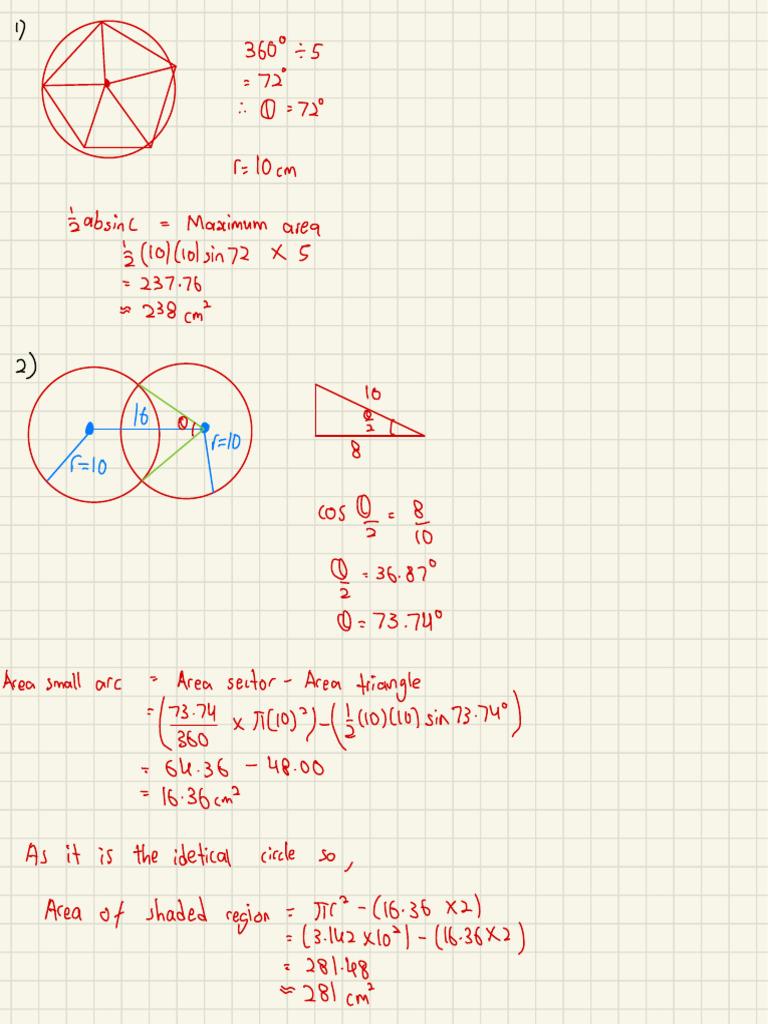 1)
360° ÷ 5
= 72°
∴ θ = 72°
r = 10 cm
½ absinC = Maximum area
½ (10)(10) sin 72 × 5
= 237.76
≈ 238 cm²
2)
16
θ
r=10
r=10
10
θ/2
8
cos θ/2 = 8/10
θ/2 = 36.87°
θ = 73.74°
Area small arc = Area sector - Area triangle
= (73.74/360 × π(10)²) - (½(10)(10) sin 73.74°)
= 64.36 - 48.00
= 16.36 cm²
As it is the idetical circle so,
Area of shaded region = πr² - (16.36 × 2)
= (3.142 × 10²) - (16.36 × 2)
= 281.48
≈ 281 cm²